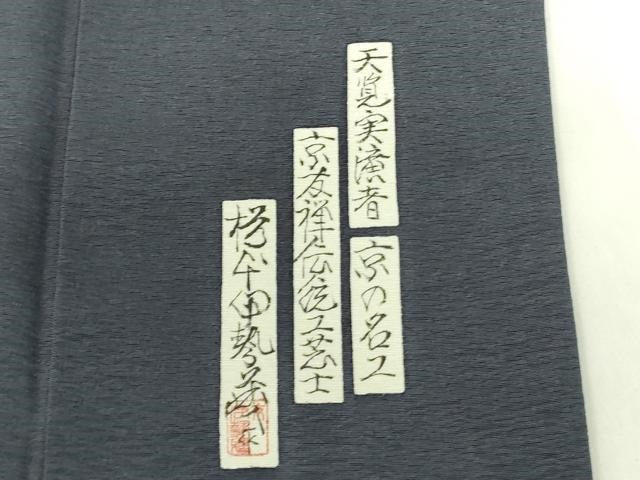 天覧実演者
京の名工
京友禅伝統工芸士
橋本伊勢